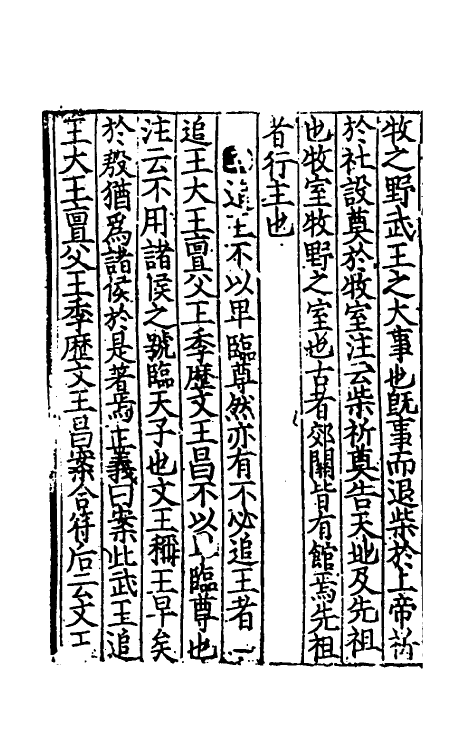 牧之野武王之大事也旣事而退柴於上帝祈
於社設奠於牧室注云柴祈奠告天地及先祖
也牧室牧野之室也古者郊關皆有館焉先祖
者行主也
追王不以卑臨尊然亦有不必追王者一
追王大王亶父王季歴文王昌不以臨尊也
注云不用諸侯之號臨天子也文王稱王早矣
於殷猶爲諸侯於是著焉正義曰案此武王追
王大王亶父王季歴文王昌案合符后云文王